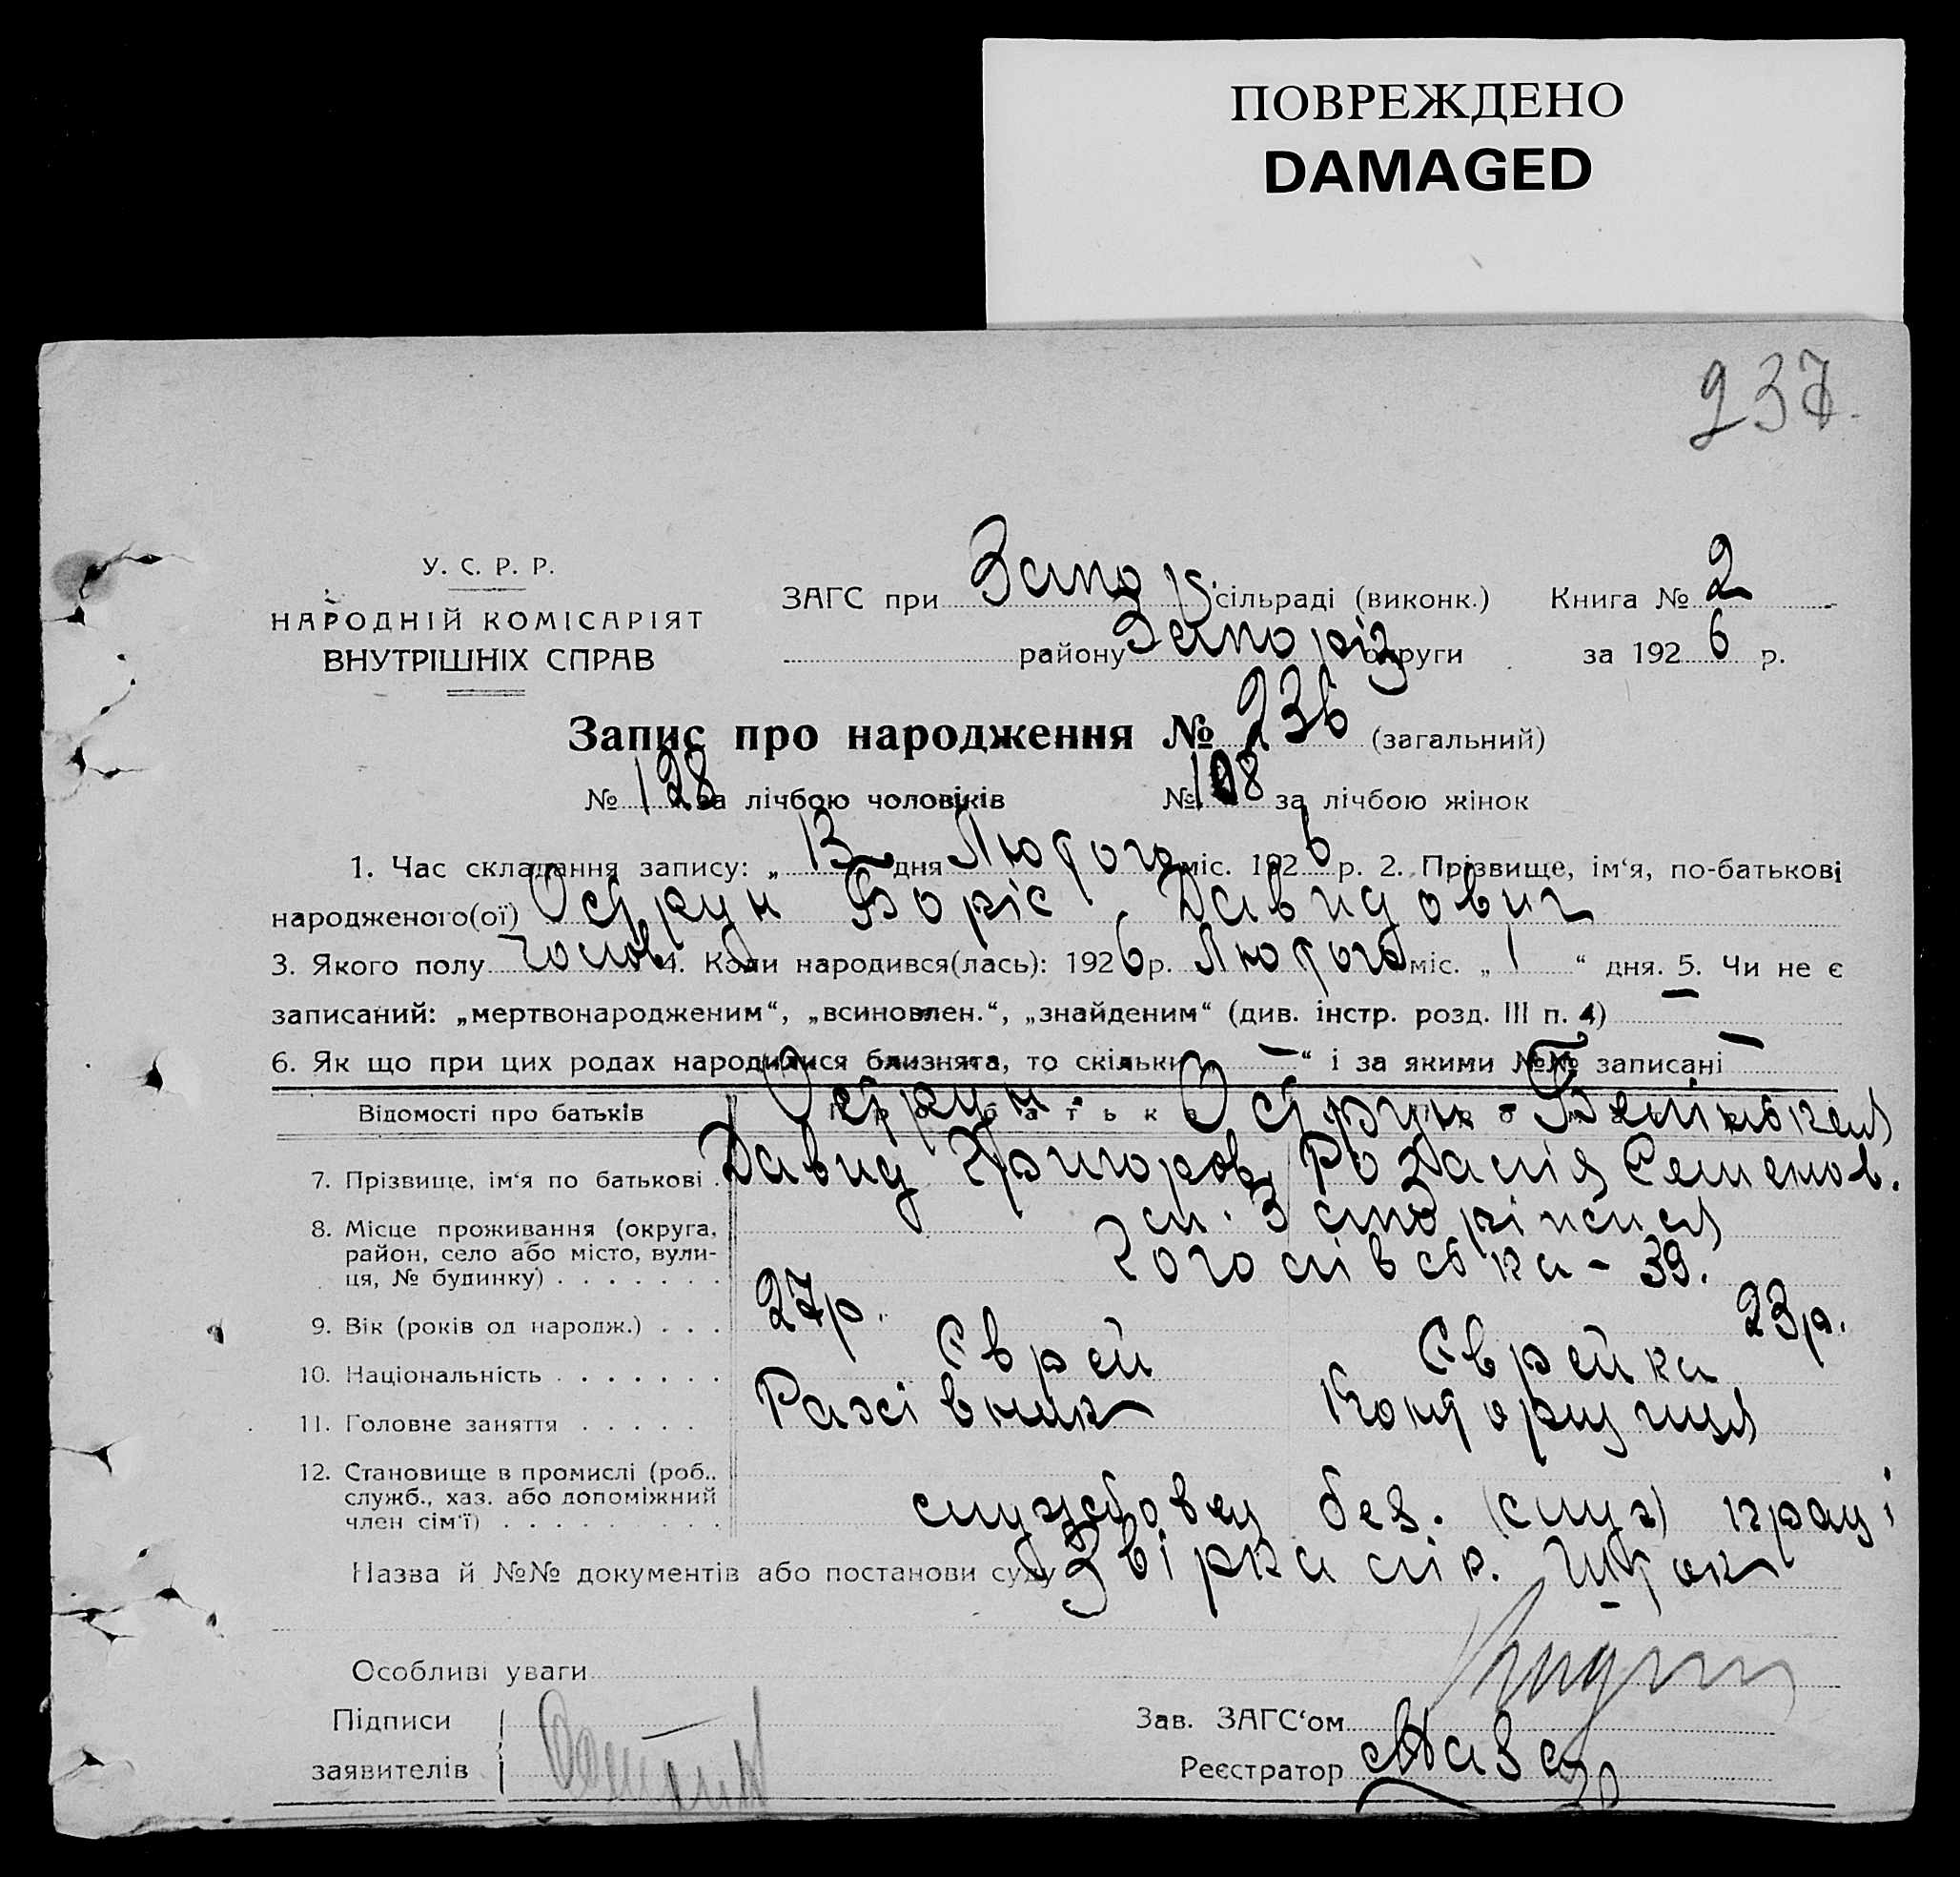 ПОВРЕЖДЕНО
DAMAGED
237.
У. С. Р. Р.
НАРОДНІЙ КОМІСАРІЯТ
ВНУТРІШНІХ СПРАВ
ЗАГС при Запор. сільраді (виконк.) Книга № 2
району Запоріз округи за 1926 р.
Запис про народження № 236 (загальний)
№ 128 за лічбою чоловіків № 108 за лічбою жінок
1. Час складання запису: „ 13 дня Лютого міс. 1926 р. 2. Прізвище, ім‘я, по-батькові
народженого(ої) Острун Боріс Давидович
3. Якого полу чолов. 4. Коли народився(лась): 1926 р. Лютого міс. „ 1 “ дня. 5. Чи не є
записаний: „мертвонародженим“, „всиновлен.“, „знайденим“ (див. інстр. розд. III п. 4) —
6. Як що при цих родах народилися близнята, то скільки — “ і за якими №№ записані —
Відомості про батьків Про батька Острун Острун -
7. Прізвище, ім‘я по батькові Давид Григоров. Розалія Семенов.
8. Місце проживання (округа, м. Запоріжжя
район, село або місто, вули- - 39.
ця, № будинку)
9. Вік (років од народж.) 27р. 23р.
10. Національність Єврей Єврейка
11. Головне заняття Рахівник Конторщиця
12. Становище в промислі (роб.,
служб., хаз. або допоміжний службовец без. (служ) праці
член сім‘ї)
Назва й №№ документів або постанови суду Звірка лік.
Особливі уваги
Підписи Зав. ЗАГС‘ом
заявителів Реєстратор